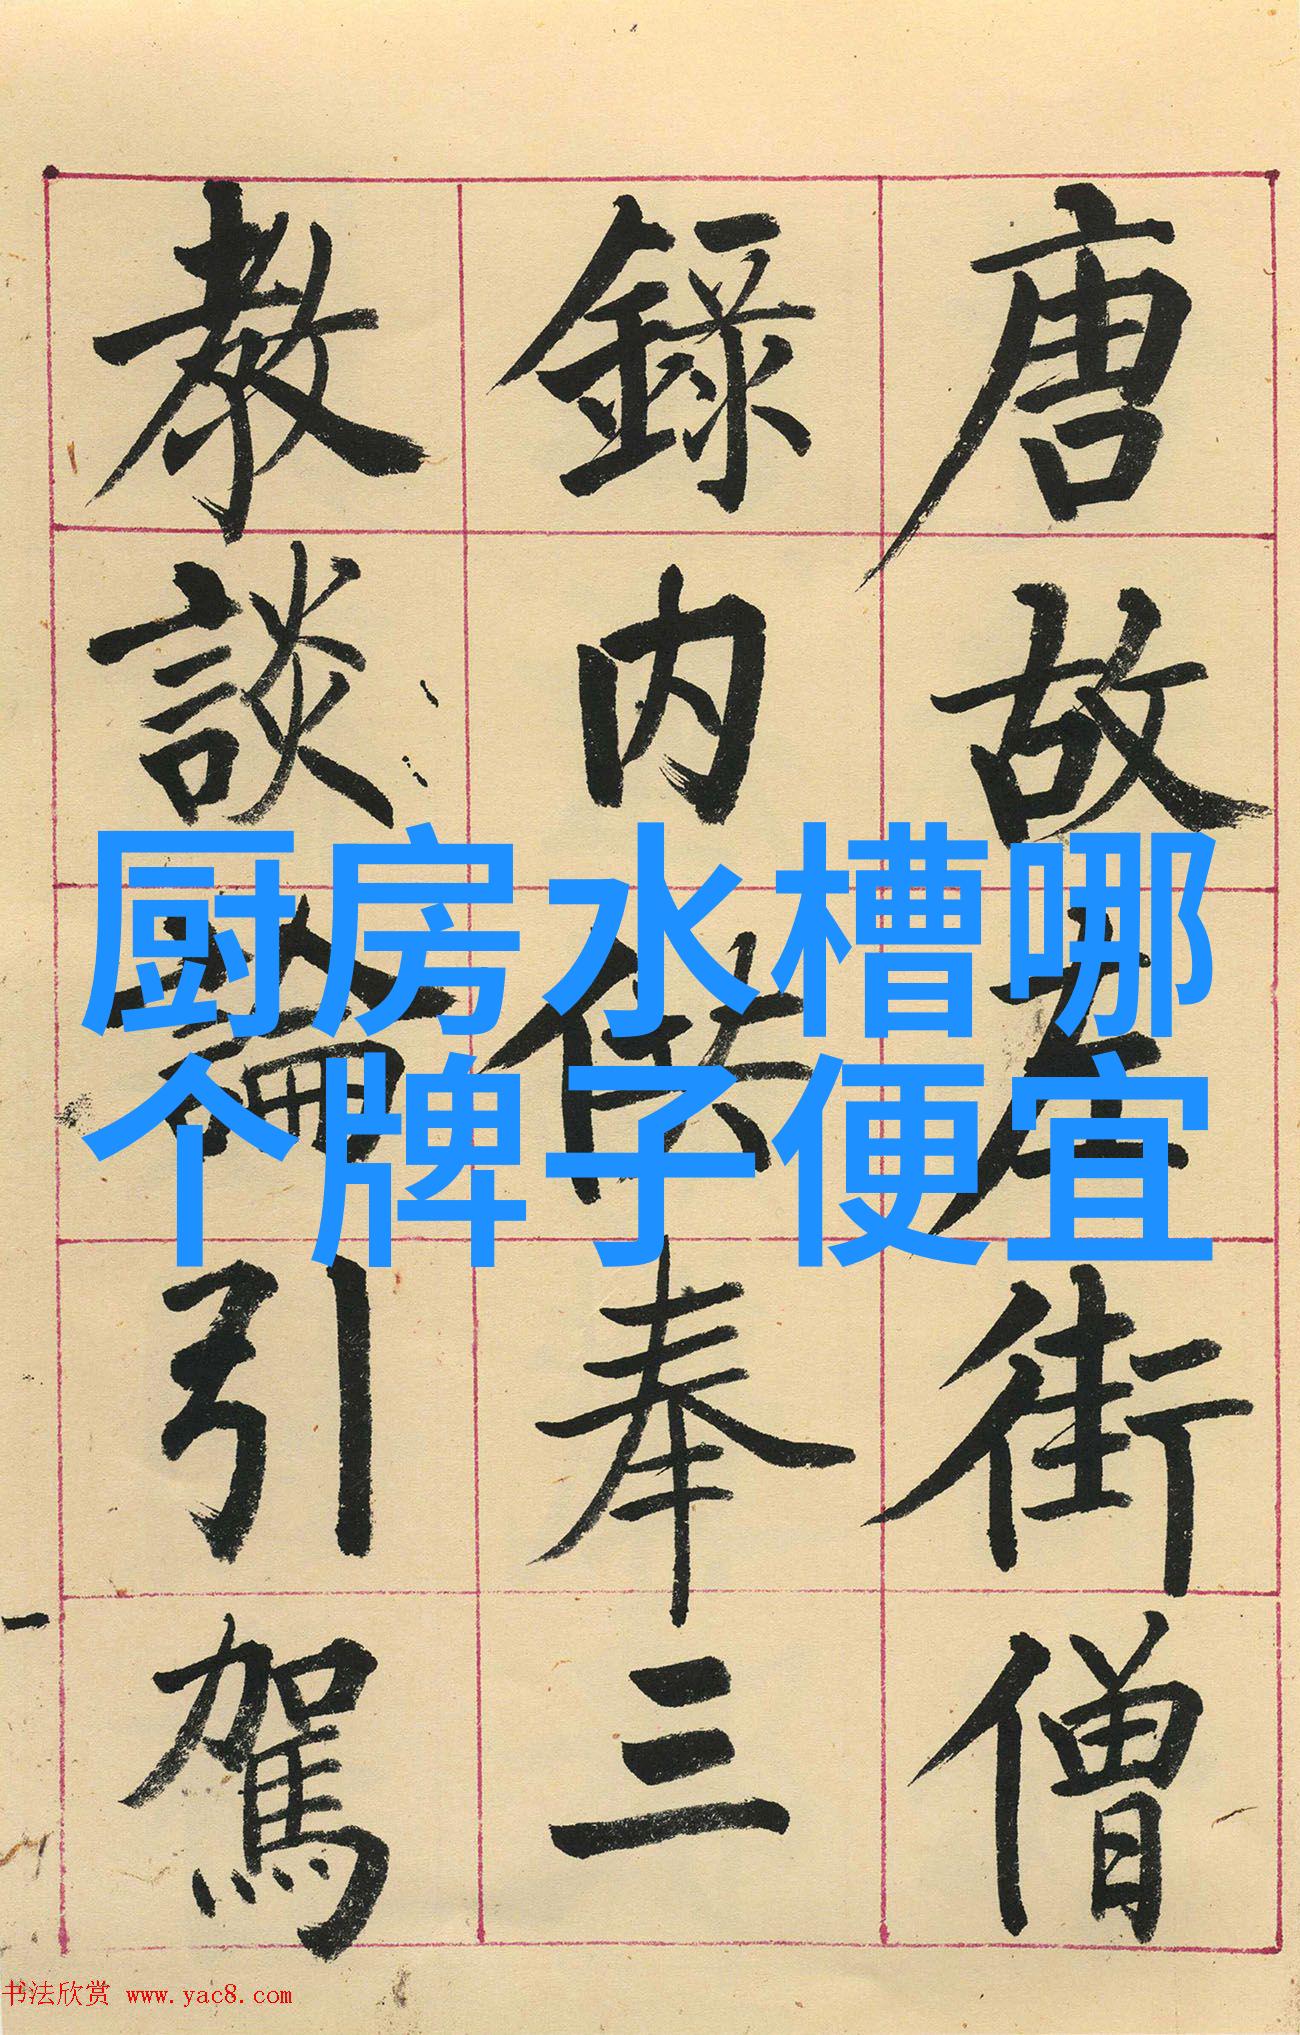 唐故左街僧
錄内供奉三
教談論引駕
厨房水槽哪
个牌子便宜
书法欣赏 www.yac8.com